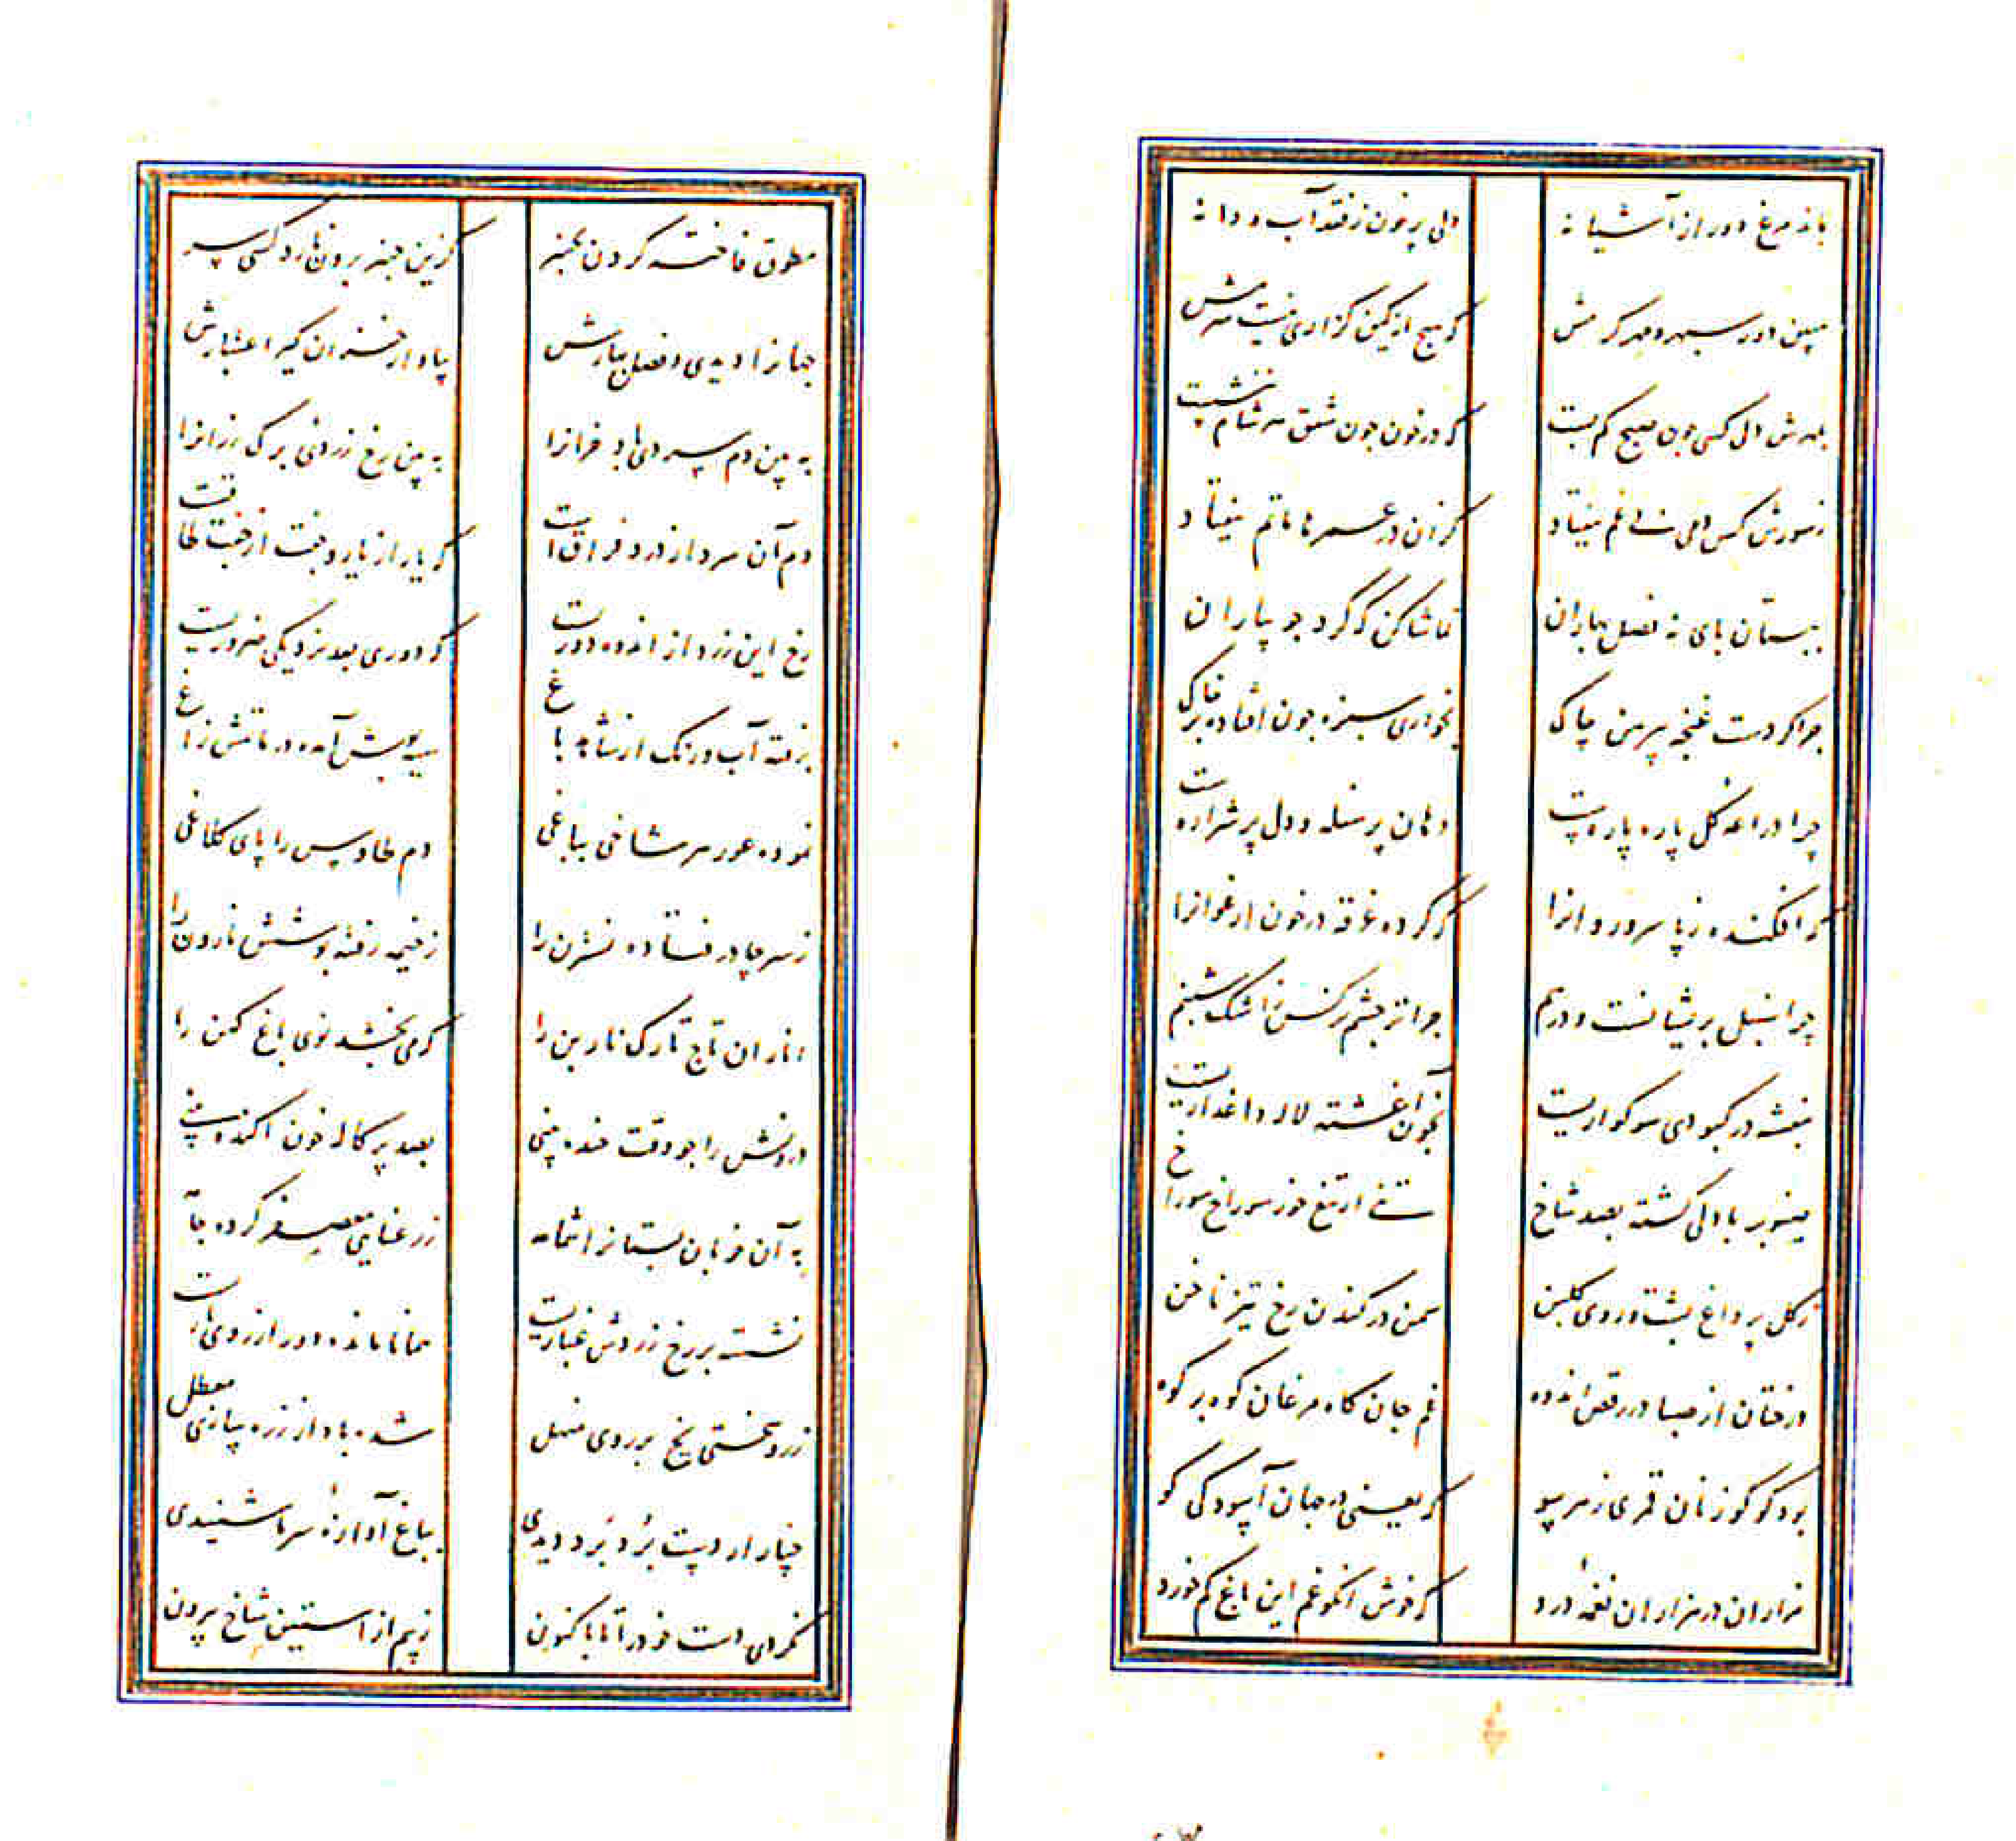 بماند مرغ دور از آشیانه
دلی پر خون ز فقد آب و دانه
مبین دور سپهر و مهر گرمش
که هیچ از کین گزاری نیست شرمش
بمهرش دل کسی چون صبح کم بست
که در خون چون شفق هر شام ننشست
ز سورش کس دمی بی غم نیفتاد
کزان در عمرها ماتم نیفتاد
ببستان پای نه فصل بهاران
تماشا کن که گرد جویباران
چرا کردست غنچه پیرهن چاک
بخواری سبزه چون افتاده بر خاک
چرا دراعه گل پاره پاره است
دهان پر شعله و دل پر شراره است
که افکنده ز پا سرو روانرا
که کرده غرقه در خون ارغوانرا
چرا سنبل پریشانست و درهم
چرا تر چشم نرگس ز اشک شبنم
بنفشه در کبودی سوکواریست
بخون آغشته لاله داغداریست
صنوبر با دلی گشته بصد شاخ
تنی از تیغ خور سوراخ سوراخ
ز گل پر داغ پشت و روی گلبن
سمن در کندن رخ تیز ناخن
درختان از صبا در رقص اندوه
غم جان کاه مرغان کوه بر کوه
بود کوکو زنان قمری ز هر سو
که یعنی در جهان آسودگی کو
هزاران در هزاران نغمه درد
که خوش آنکو غم این باغ کم خورد
مطوق فاخته گردن بچنبر
کزین چنبر برون نارد کسی سر
جهانرا دیدی و فصل بهارش
بیا و از خزان گیر اعتبارش
به بین دم سردی باد خزانرا
به بین رخ زردی برگ رزانرا
دم آن سرد از درد فراق است
که یار از یار و جفت از جفت طاقت
رخ این زرد از اندوه دوریست
که دوری بعد نزدیکی ضروریست
برفته آب و رنگ از شاهد باغ
سیه پوش آمده در ماتمش زاغ
نموده عور هر شاخی بباغی
دم طاوس را پای کلاغی
ز سر چادر فتاده نسترن را
ز خیمه رفته پوشش نارون را
انار آن تاج تارک ناربن را
که می بخشد نوی باغ کهن را
درونش را چو وقت خنده بینی
بصد پرکاله خون آکنده بینی
به آن خوبان بستانرا شمامه
ز رعنایی معصفر کرده جامه
نشسته بر رخ زردش غباریست
همانا مانده دور از روی یاریست
ز روسختی یخ بر روی منهل
شده باد از زره سازی معطل
چنار ار دست بُرد بَرد دیدی
بباغ آوازه سرما شنیدی
نکردی دست خود را تا بکنون
ز بیم از آستین شاخ بیرون